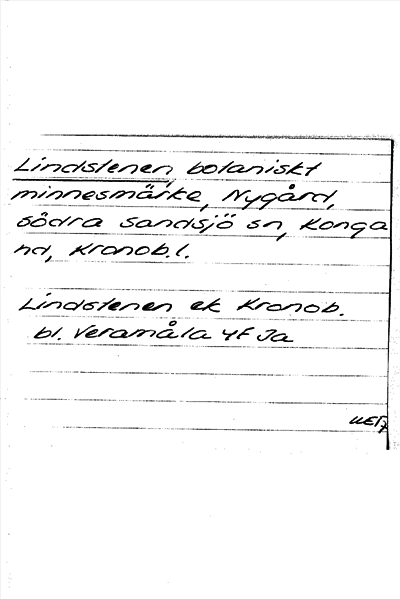 Lindstenen, botaniskt
minnesmärke, Nygård,
södra sandsjö sn, Konga
hd, Kronob.l.
Lindstenen ek Kronob.
bl. Veramåla 4F Ja